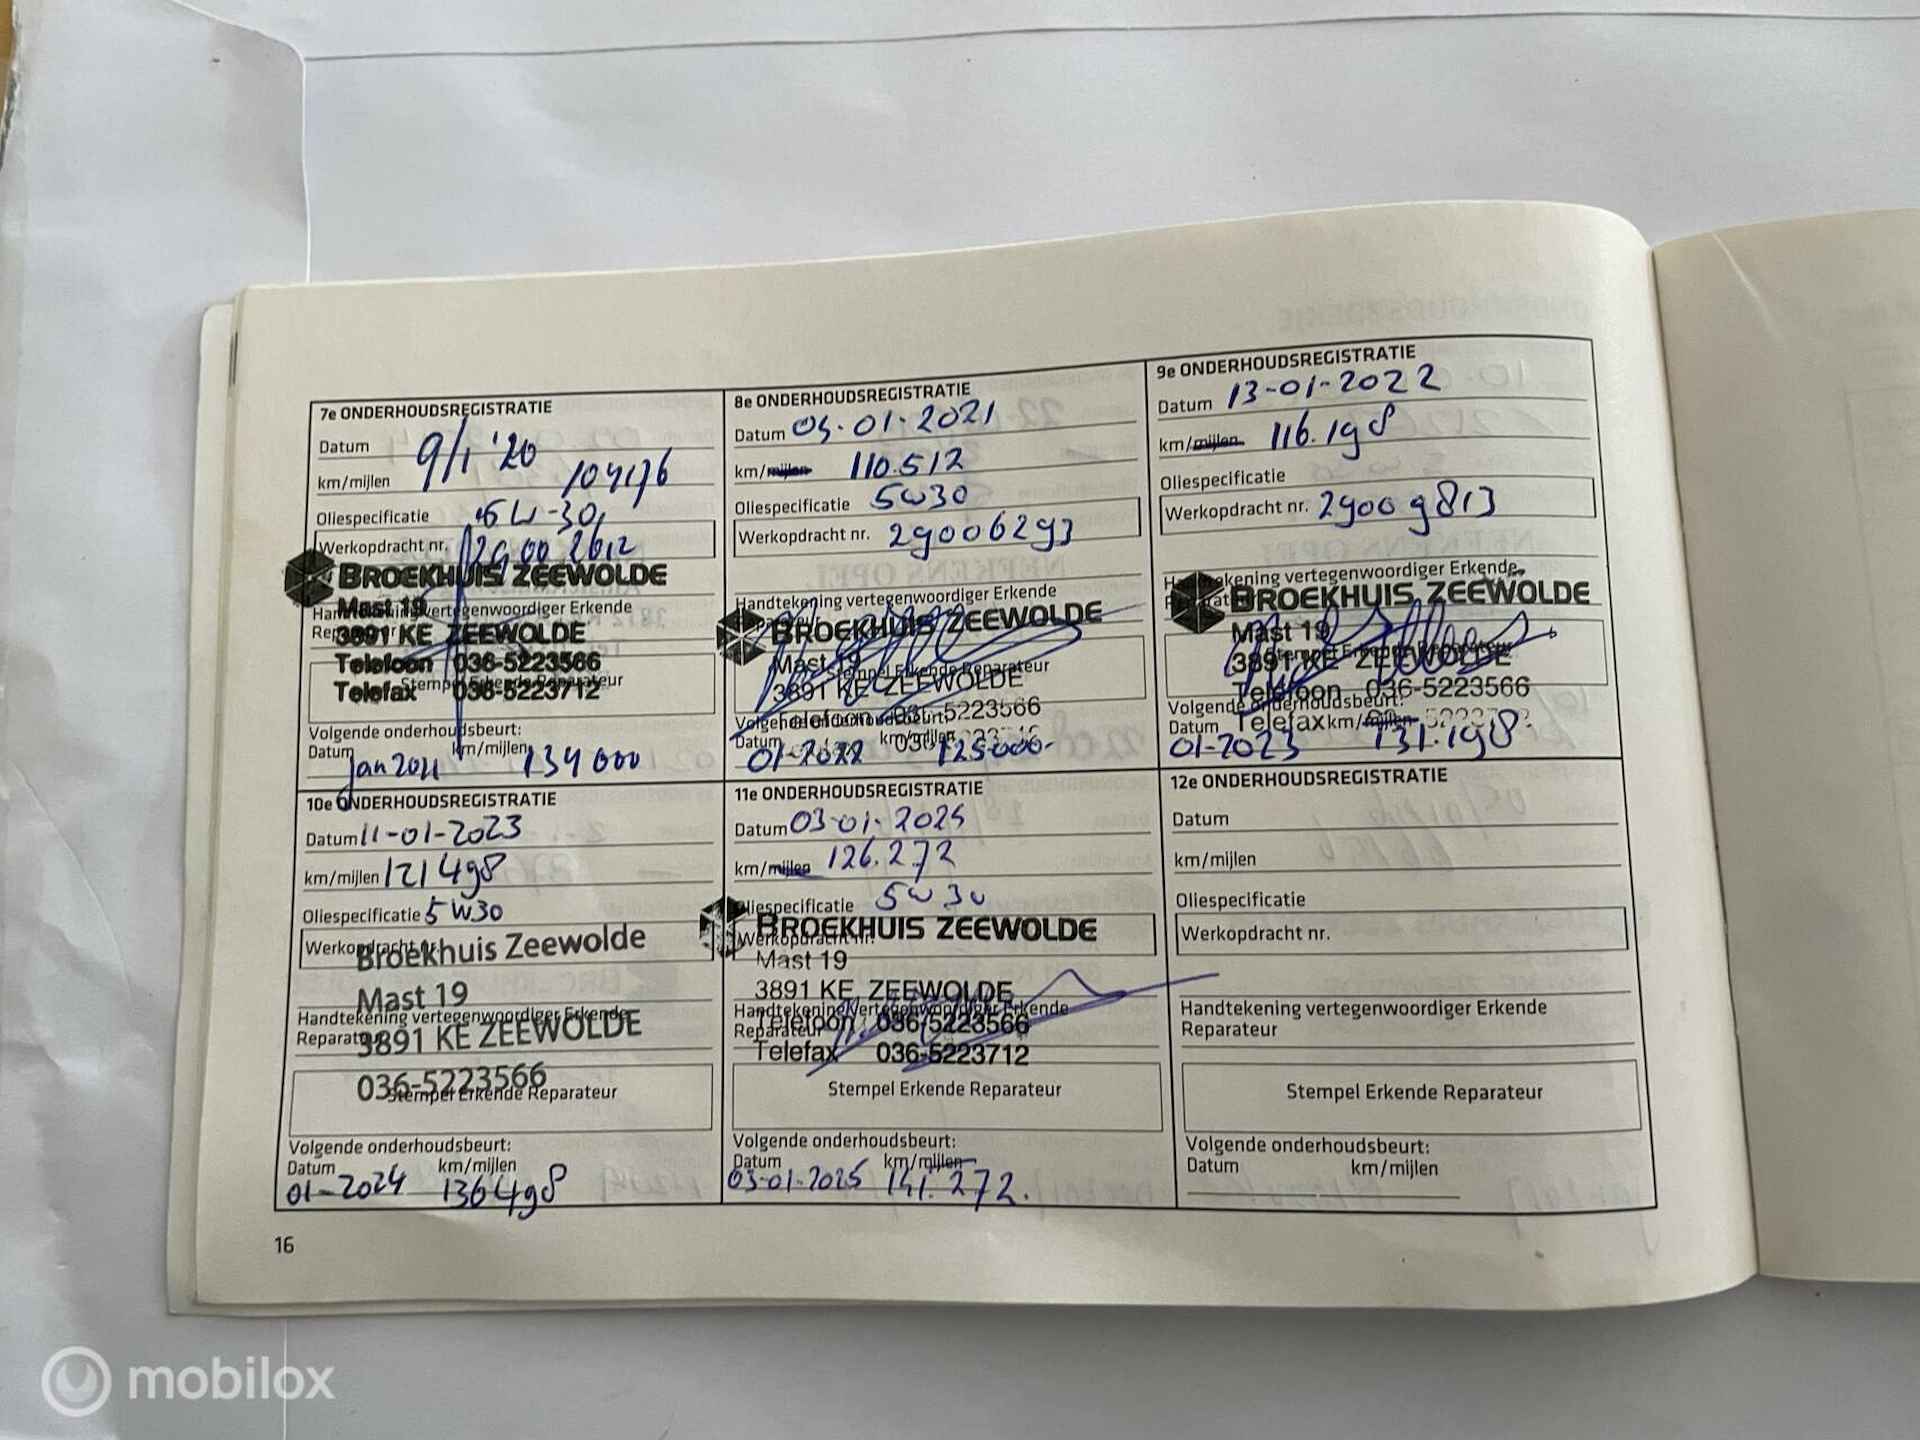 7e ONDERHOUDSREGISTRATIE
Datum 9/1 '20
km/mijlen 104176
Oliespecificatie 5W-30
Werkopdracht nr. 29002612
BROEKHUIS ZEEWOLDE
Mast 19
Handtekening vertegenwoordiger Erkende
Reparateur
3891 KE ZEEWOLDE
Telefoon 036-5223566
Stempel Erkende Reparateur
Telefax 036-5223712
Volgende onderhoudsbeurt:
Datum km/mijlen
jan 2021 134000
8e ONDERHOUDSREGISTRATIE
Datum 05-01-2021
km/mijlen 110.512
Oliespecificatie 5W30
Werkopdracht nr. 29006293
Handtekening vertegenwoordiger Erkende
Reparateur
BROEKHUIS ZEEWOLDE
Mast 19
Stempel Erkende Reparateur
3891 KE ZEEWOLDE
Telefoon 036-5223566
Volgende onderhoudsbeurt:
Datum km/mijlen
01-2022 125000-
9e ONDERHOUDSREGISTRATIE
Datum 13-01-2022
km/mijlen 116.198
Oliespecificatie
Werkopdracht nr. 29009813
Handtekening vertegenwoordiger Erkende
Reparateur
BROEKHUIS ZEEWOLDE
Mast 19
Stempel Erkende Reparateur
3891 KE ZEEWOLDE
Telefoon 036-5223566
Volgende onderhoudsbeurt:
Datum Telefax km/mijlen
01-2023 131.198
10e ONDERHOUDSREGISTRATIE
Datum 11-01-2023
km/mijlen 121498
Oliespecificatie 5W30
Werkopdracht nr.
Broekhuis Zeewolde
Mast 19
Handtekening vertegenwoordiger Erkende
Reparateur
3891 KE ZEEWOLDE
036-5223566
Stempel Erkende Reparateur
Volgende onderhoudsbeurt:
Datum km/mijlen
01-2024 136498
11e ONDERHOUDSREGISTRATIE
Datum 03-01-2025
km/mijlen 126.272
Oliespecificatie 5W30
BROEKHUIS ZEEWOLDE
Werkopdracht nr.
Mast 19
3891 KE ZEEWOLDE
Handtekening vertegenwoordiger Erkende
Reparateur
Telefoon 036-5223566
Telefax 036-5223712
Stempel Erkende Reparateur
Volgende onderhoudsbeurt:
Datum km/mijlen
03-01-2025 141.272.
12e ONDERHOUDSREGISTRATIE
Datum
km/mijlen
Oliespecificatie
Werkopdracht nr.
Handtekening vertegenwoordiger Erkende
Reparateur
Stempel Erkende Reparateur
Volgende onderhoudsbeurt:
Datum km/mijlen
16
mobilox